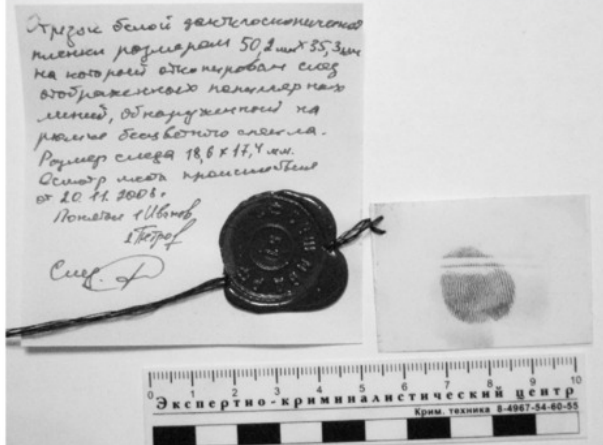 Отрезок белой дактилоскопической
пленки размером 50,2мм×35,3мм
на которой откопирован след
отображенных папиллярных
линий, обнаруженный на
рюмке бесцветного стекла.
Размер следа 18,6×17,4 мм.
Осмотр места происшествия
от 20.11.2008г.
Понятые 1 Иванов
2 Петров
След.
0 1 2 3 4 5 6 7 8 9 10
Экспертно-криминалистический центр
Крим. техника 8-4967-54-60-55